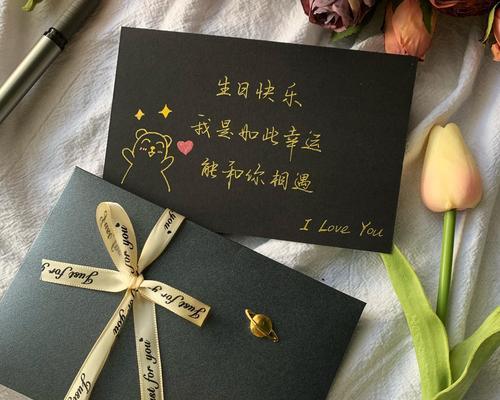 生日快乐
我是如此幸运
能和你相遇
I Love You
Just for you
Just for y
Just for you